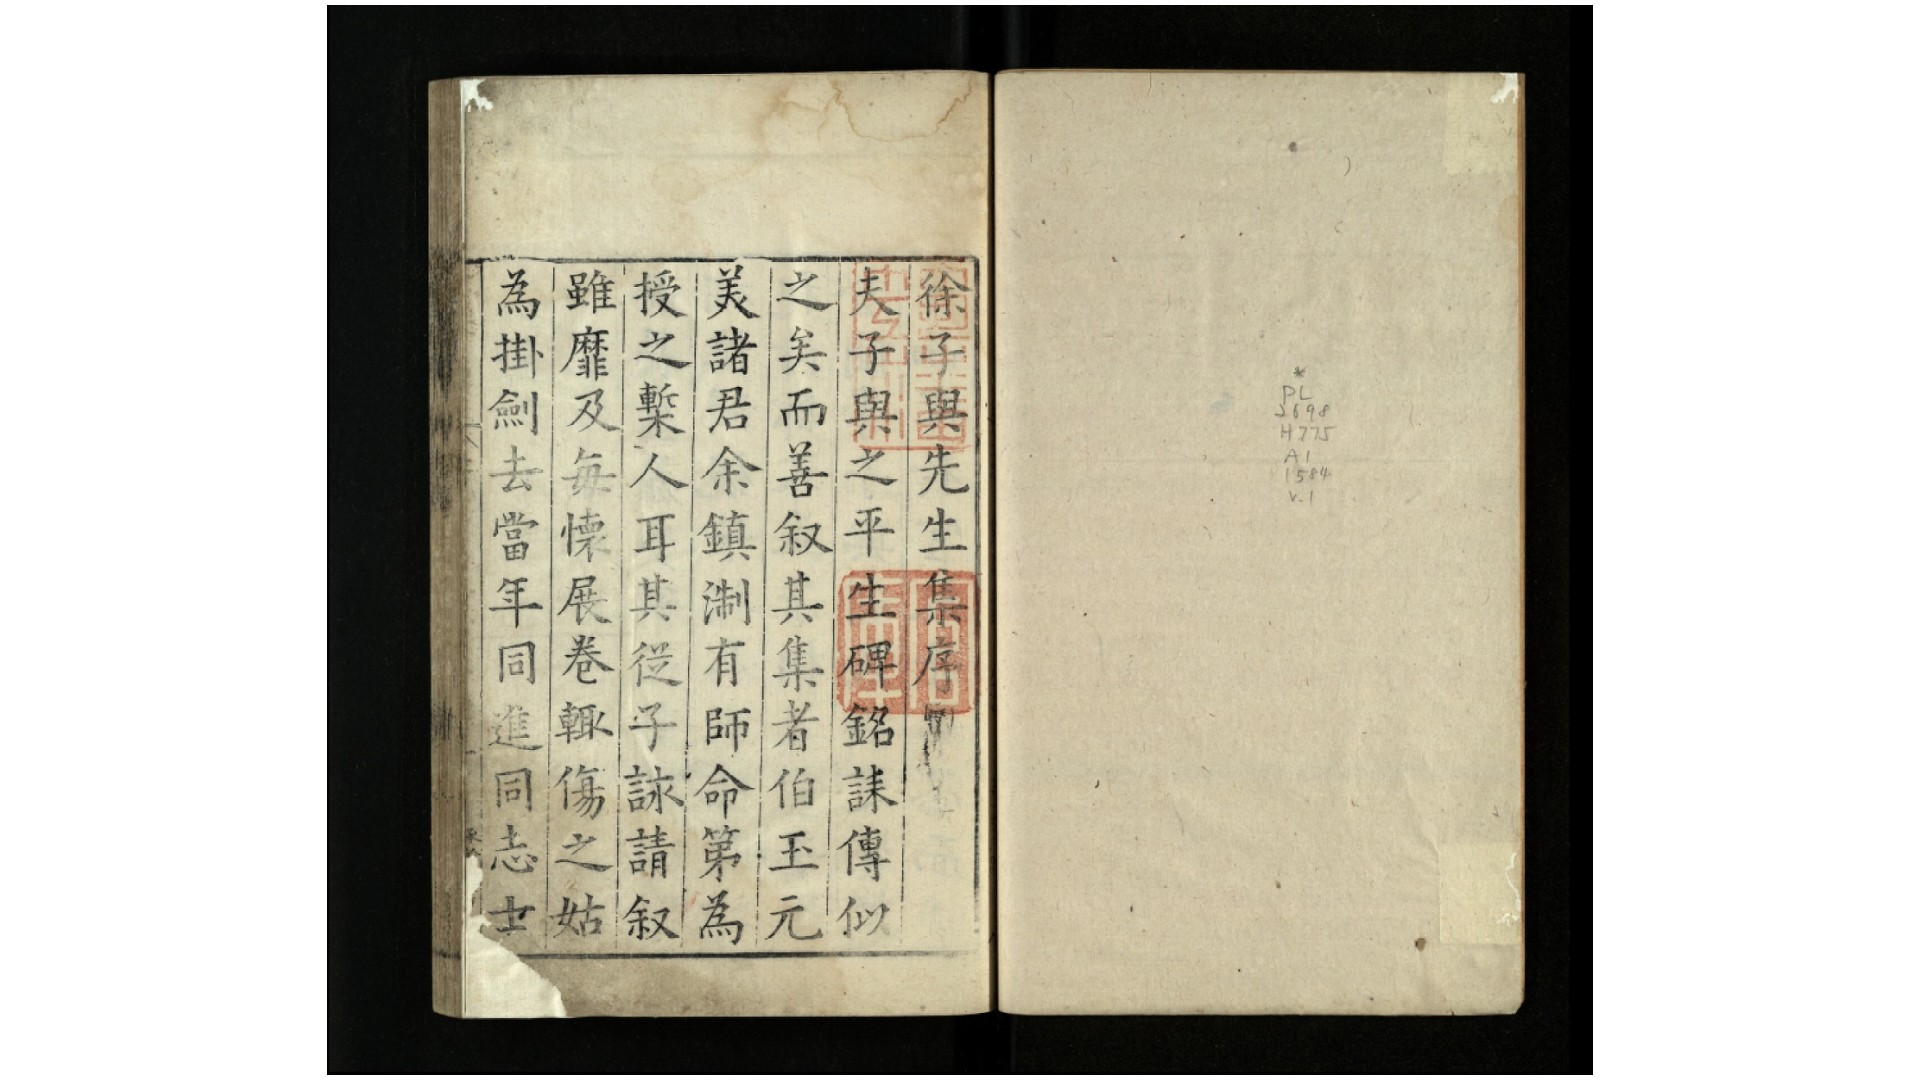 徐子與先生集序
夫子與之平生碑銘誄傳似
之矣而善叙其集者伯玉元
美諸君余鎮淛有師命第為
授之槧人耳其從子詠請叙
雖靡及每懐展卷輙傷之姑
為掛劍去當年同進同志士
*
PL
2698
H775
A1
1584
v.1